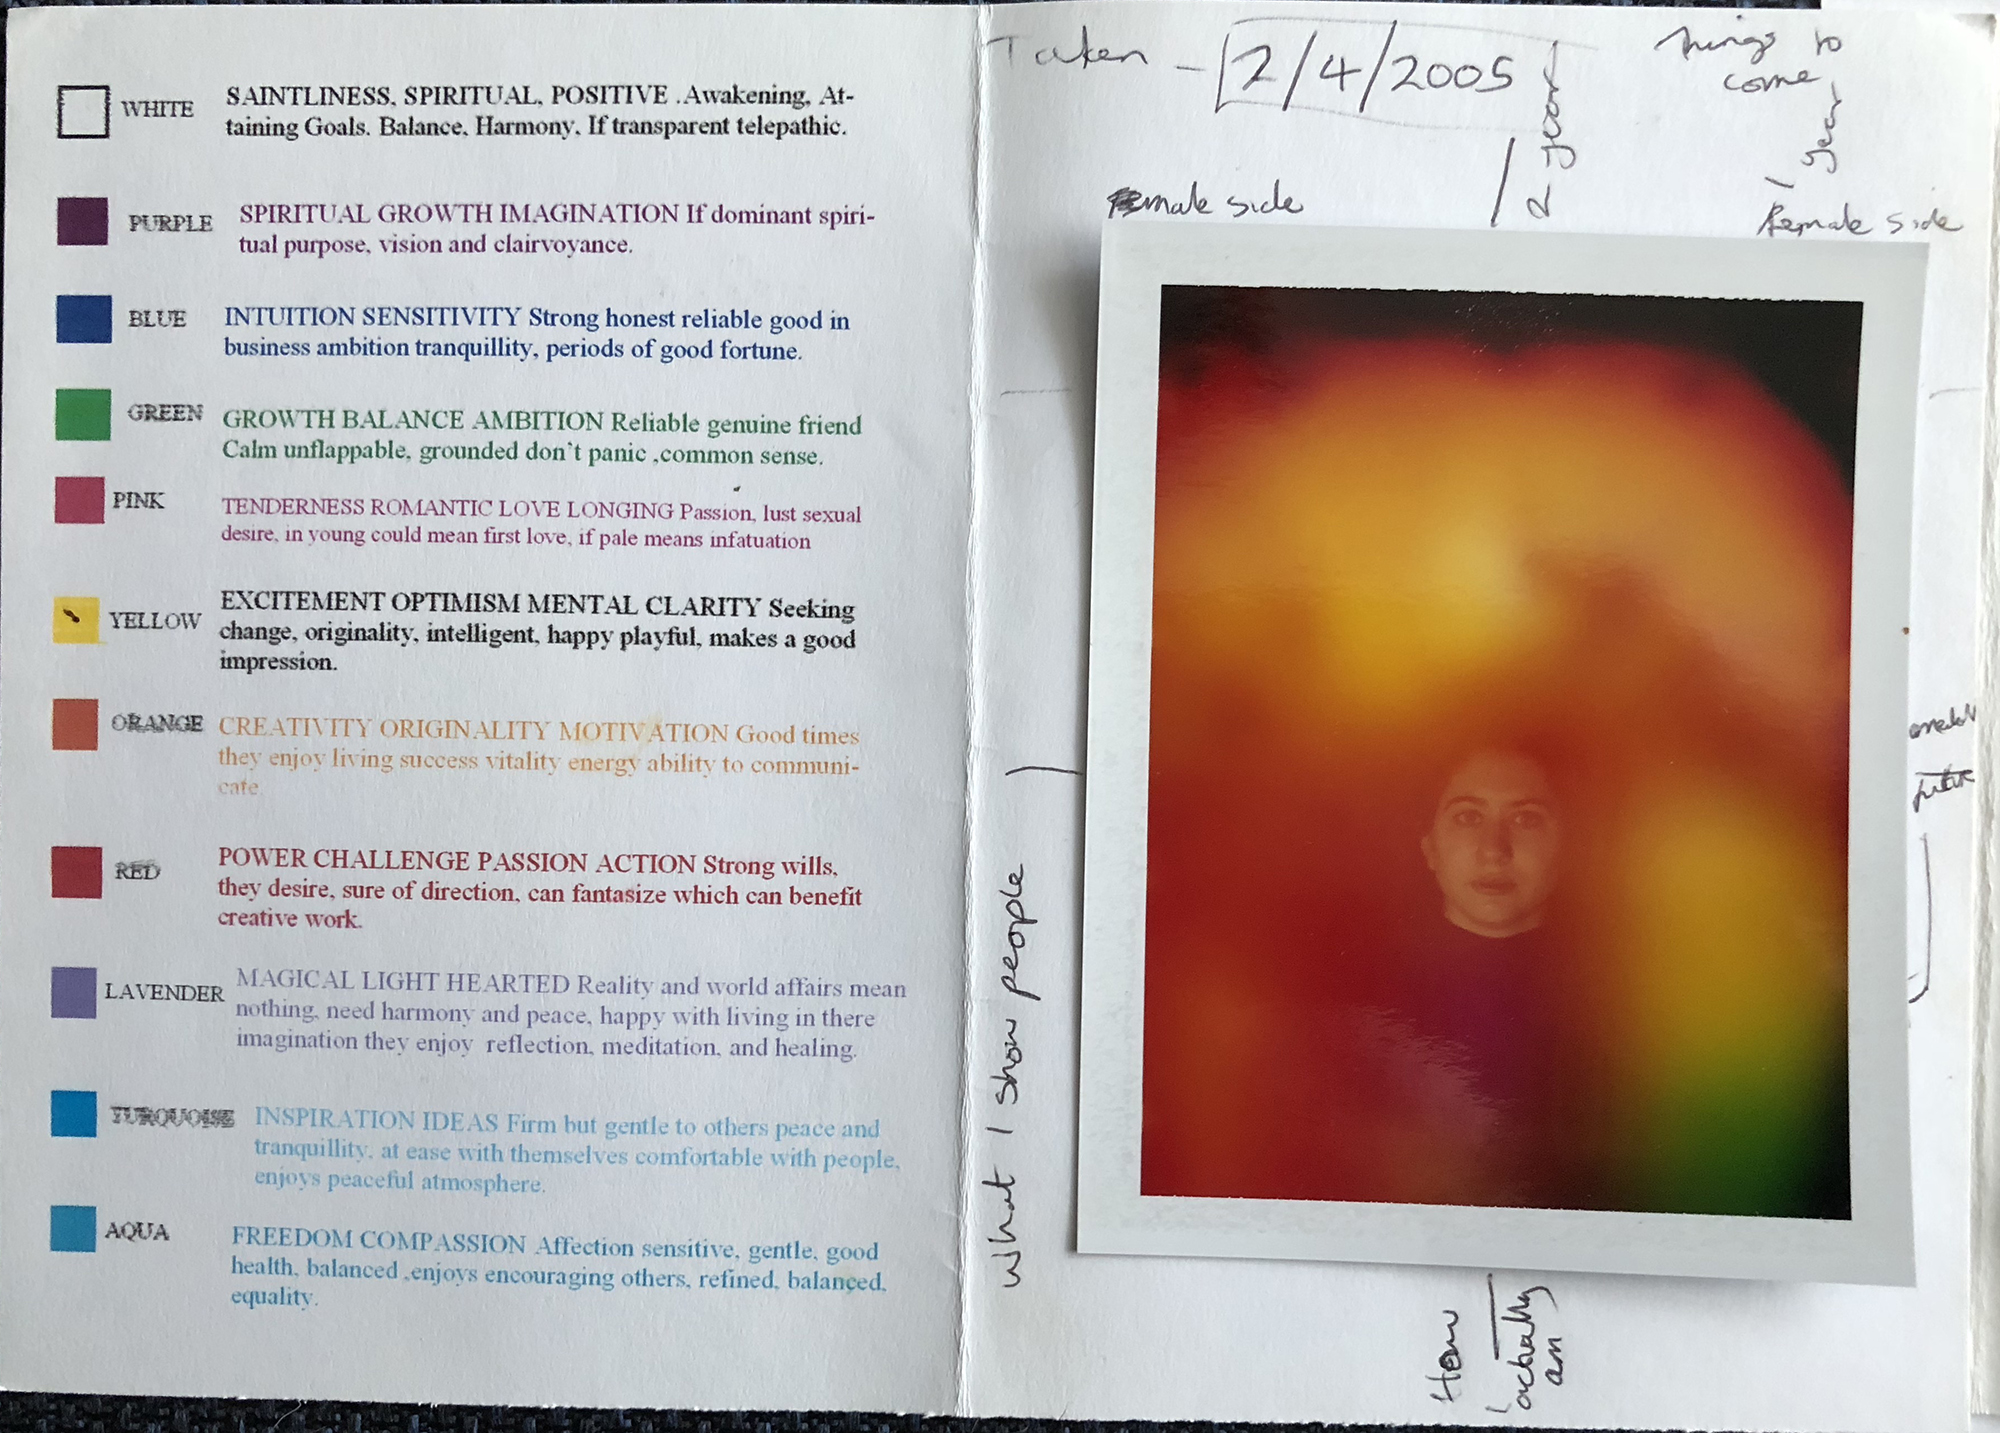 WHITE
SAINTLINESS, SPIRITUAL, POSITIVE .Awakening, At-
taining Goals. Balance, Harmony, If transparent telepathic.
PURPLE
SPIRITUAL GROWTH IMAGINATION If dominant spiri-
tual purpose, vision and clairvoyance.
BLUE
INTUITION SENSITIVITY Strong honest reliable good in
business ambition tranquillity, periods of good fortune.
GREEN
GROWTH BALANCE AMBITION Reliable genuine friend
Calm unflappable, grounded don't panic ,common sense.
PINK
TENDERNESS ROMANTIC LOVE LONGING Passion, lust sexual
desire, in young could mean first love, if pale means infatuation
YELLOW
EXCITEMENT OPTIMISM MENTAL CLARITY Seeking
change, originality, intelligent, happy playful, makes a good
impression.
ORANGE
CREATIVITY ORIGINALITY MOTIVATION Good times
they enjoy living success vitality energy ability to communi-
cate.
RED
POWER CHALLENGE PASSION ACTION Strong wills,
they desire, sure of direction, can fantasize which can benefit
creative work.
LAVENDER
MAGICAL LIGHT HEARTED Reality and world affairs mean
nothing, need harmony and peace, happy with living in there
imagination they enjoy reflection, meditation, and healing.
TURQUOISE
INSPIRATION IDEAS Firm but gentle to others peace and
tranquillity, at ease with themselves comfortable with people,
enjoys peaceful atmosphere.
AQUA
FREEDOM COMPASSION Affection sensitive, gentle, good
health, balanced ,enjoys encouraging others, refined, balanced,
equality.
Taken - 2/4/2005
2 year
things to
come
1 year
male side
female side
What I show people
future
How
I actually
am